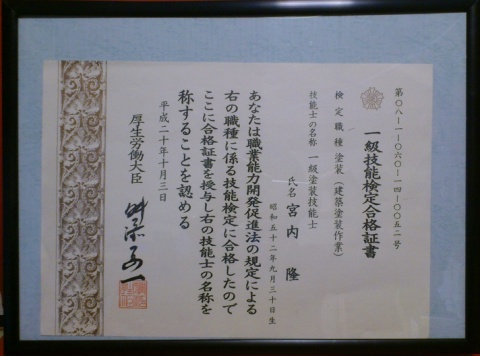 第〇八-一-〇六〇-一四-〇〇五二号
一級技能検定合格証書
検定職種 塗装（建築塗装作業）
技能士の名称 一級塗装技能士
氏名 宮内 隆
昭和五十二年九月三十日生
あなたは職業能力開発促進法の規定による
右の職種に係る技能検定に合格したので
ここに合格証書を授与し右の技能士の名称を
称することを認める
平成二十年十月三日
厚生労働大臣